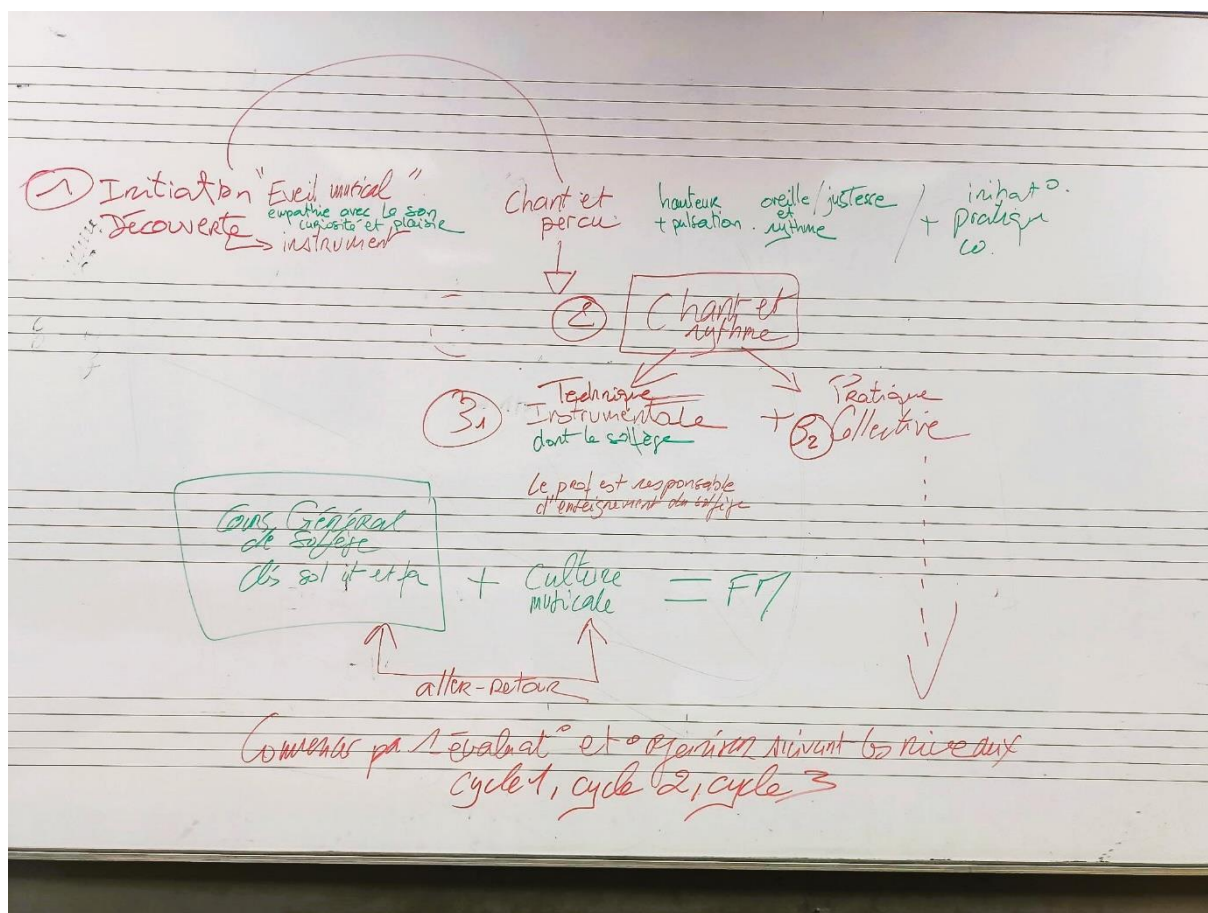 1 Initiation "Eveil musical"
empathie avec le son
curiosité et plaisir
Découverte
instrument
Chant et
percu.
hauteur
+ pulsation.
oreille/justesse
et
rythme
/ + initiat°.
pratiqu
co.
2 Chant et
rythme
31 Technique
Instrumentale
dont le solfège
+ 32 Pratique
Collective
Le prof est responsable
d'enseignement du solfège
Cours Général
de Solfège
clés sol ut et fa
+ Culture
musicale
= FM
aller-retour
par 1 évaluat° et organiser suivant les niveaux
cycle 1, cycle 2, cycle 3